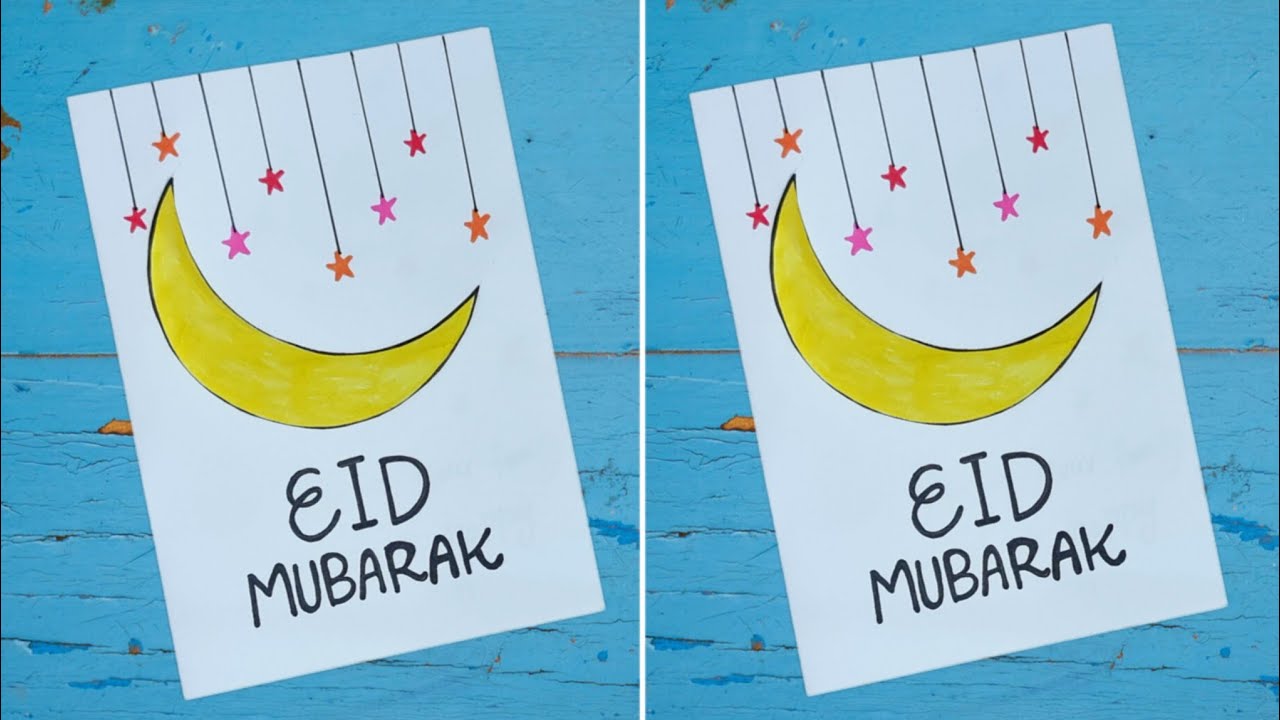 EID
MUBARAK
EID
MUBARAK